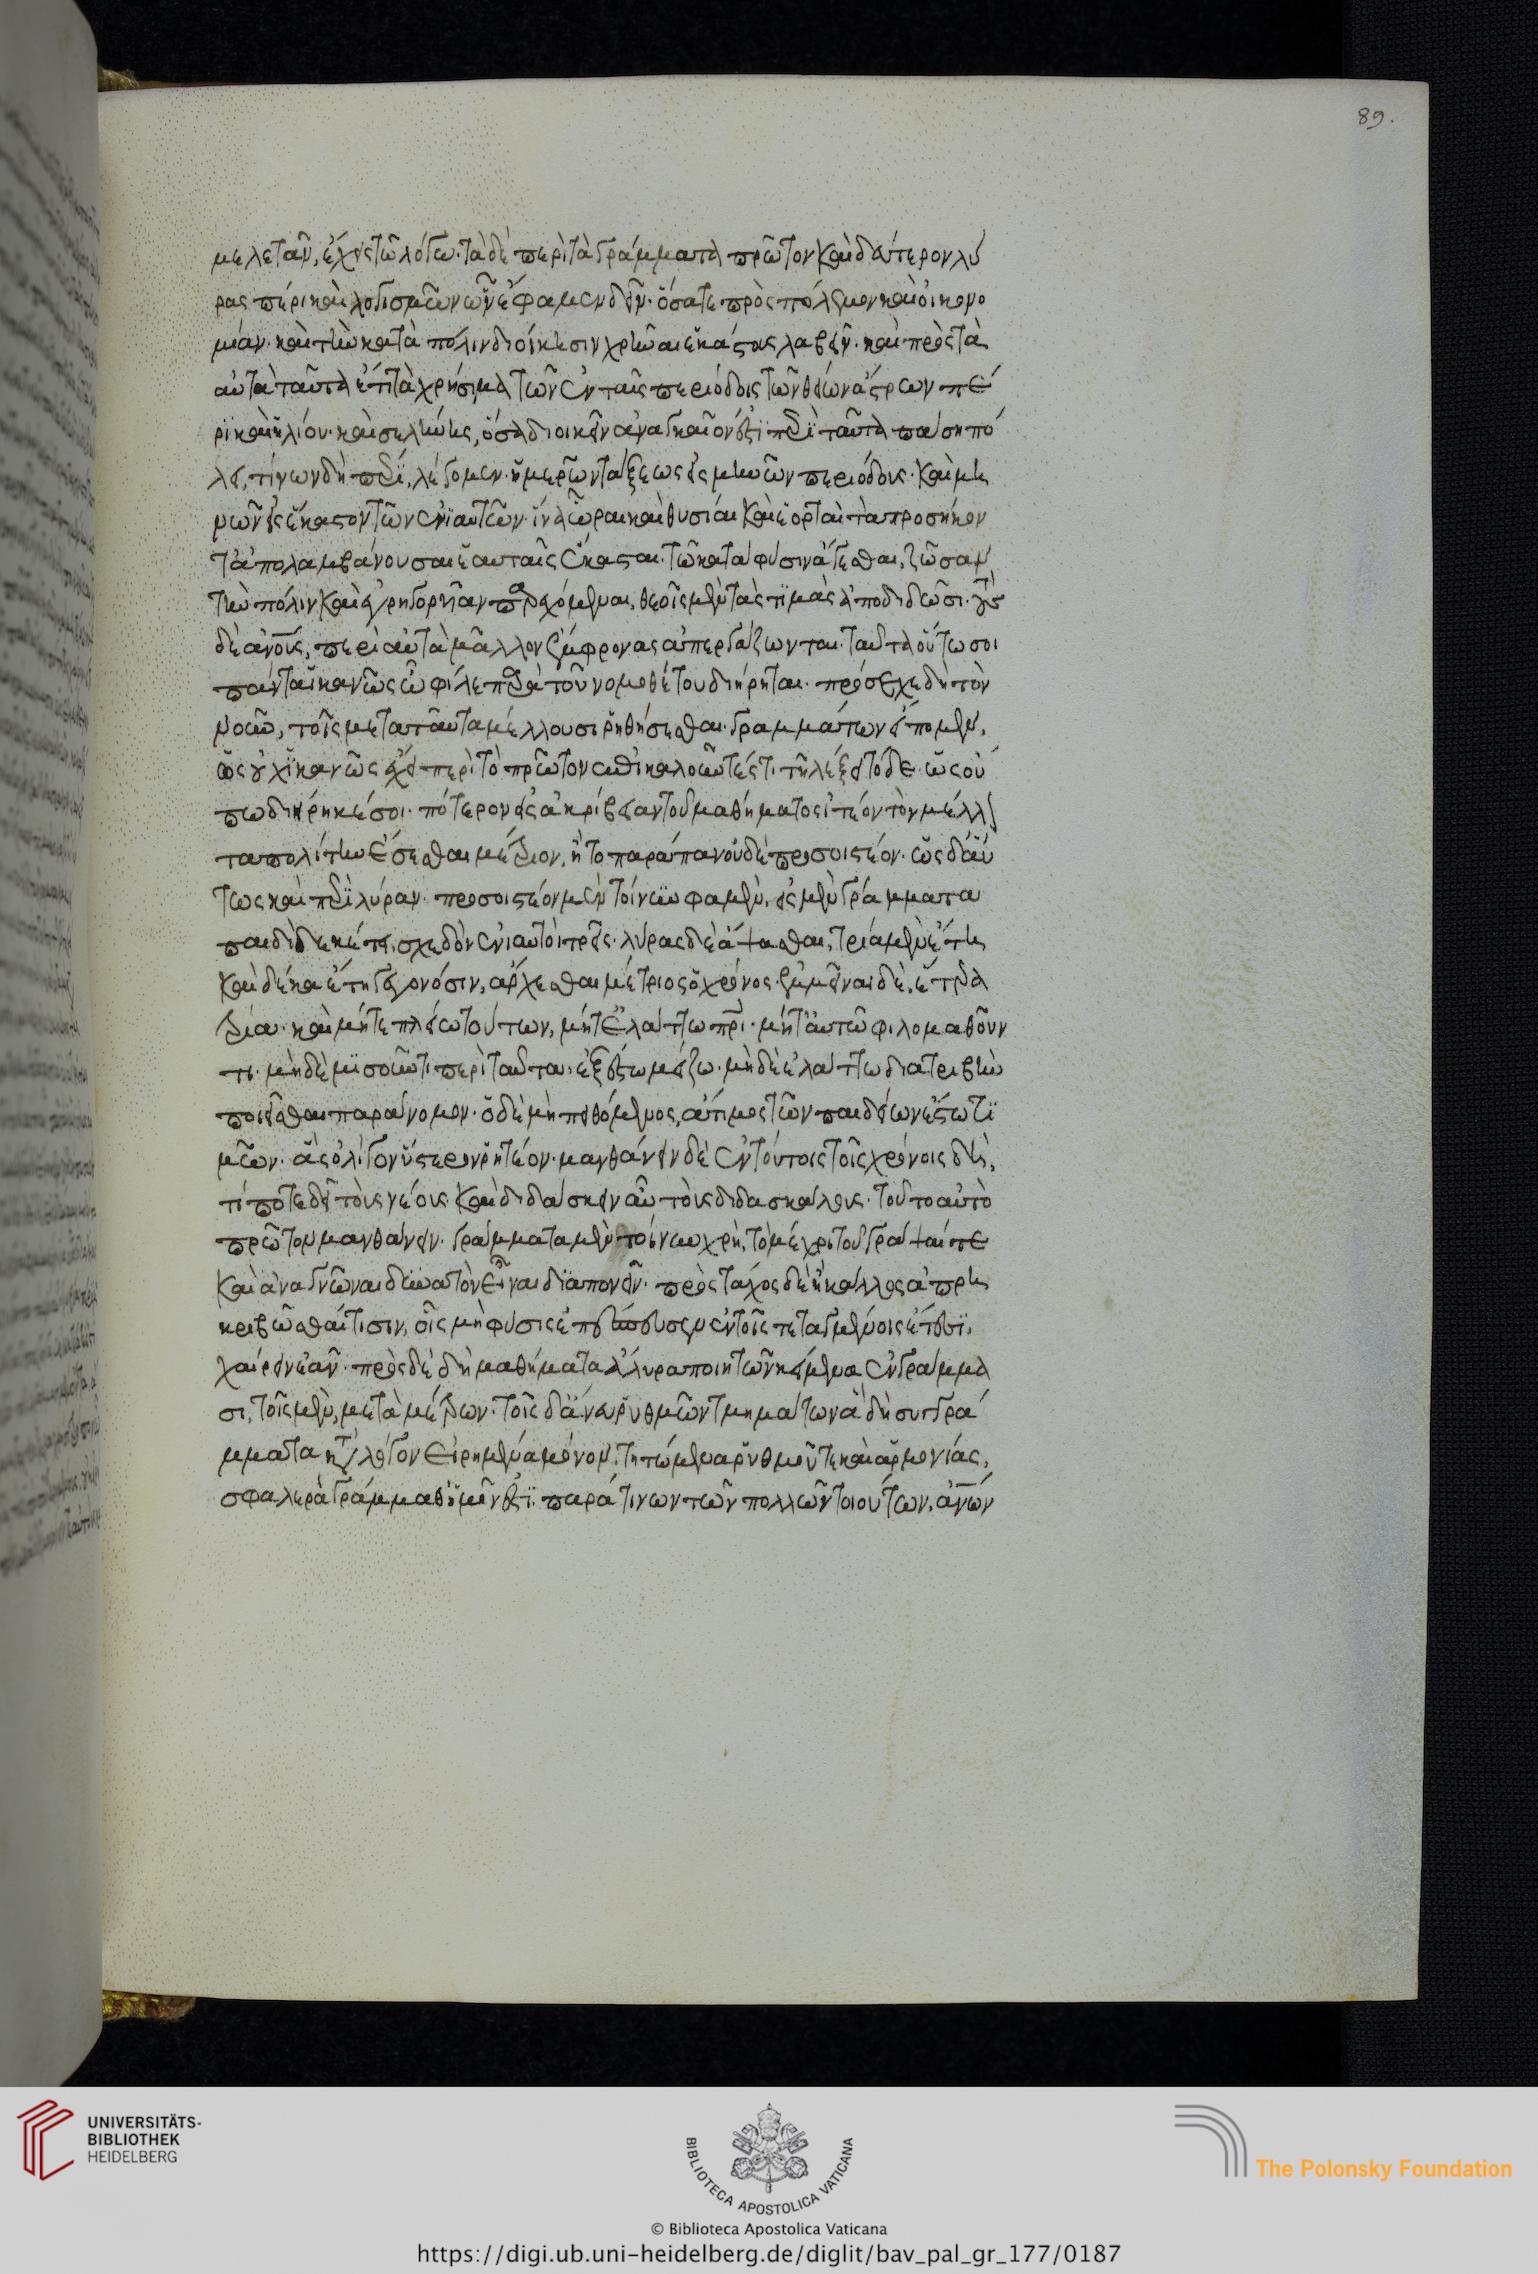 μελετᾶν, ἔχεις τῶ λόγω· τὰ δὲ περὶ τὰ γράμματα πρῶτον καὶ δεύτερον λύ
ρας πέρι καὶ λογισμῶν ὧν ἔφαμεν δεῖν· ὅσα τε πρὸς πόλεμον καὶ οἰκονο
μίαν· καὶ τὴν κατὰ πόλιν διοίκησιν χρῆναι ἑκάστους λαβεῖν· καὶ πρὸς τὰ
αὐτὰ ταῦτα ἔτι τὰ χρήσιμα τῶν ἐν ταῖς περιόδοις τῶν θείων ἄστρων πέ
ρι καὶ ἡλίου· καὶ σελήνης, ὅσα διοικεῖν ἀναγκαῖον ἐστὶ περὶ ταῦτα πάση πό
λει, τίνων δὴ περὶ, λέγομεν· ἡμερῶν τάξεως εἰς μηνῶν περιόδους· καὶ μη
νῶν εἰς ἕκαστον τῶν ἐνιαυτῶν· ἵνα ὧραι καὶ θυσίαι καὶ ἑορταὶ τὰ προσήκον
τα ἀπολαμβάνουσαι ἑαυταῖς ἕκασται· τῶ κατὰ φύσιν ἄγεσθαι, ζῶσαν
τὴν πόλιν καὶ ἐγρηγορυῖαν παρεχόμεναι, θεοῖς μὲν τὰς τιμὰς ἀποδιδῶσι· τοὺς
δὲ ἀνους, περὶ αὐτὰ μᾶλλον ἔμφρονας ἀπεργάζωνται· ταῦτα οὔπω σοι
πάντα ἱκανῶς ὦ φίλε παρὰ τοῦ νομοθέτου διήρηται· πρόσεχε δὴ τὸν
νοῦν, τοῖς μετὰ ταῦτα μέλλουσι ῥηθήσεσθαι· γραμμάτων εἴπομεν,
ὡς οὐχ ἱκανῶς ἔχει περὶ τὸ πρῶτον ἐπικαλοῦντές τι τῆ λέξει τόδε· ὡς οὔ
πω διήρηκέ σοι· πότερον εἰς ἀκρίβειαν τοῦ μαθήματος ἰτέον τὸν μέλλον
τα πολίτην ἔσεσθαι μέτριον, ἢ τὸ παράπαν οὐδὲ προσοιστέον· ὡς δ᾽ αὕ
τως καὶ περὶ λύραν· προσοιστέον μὲν τοίνυν φαμὲν, εἰς μὲν γράμματα
παιδὶ δεκέτει, σχεδὸν ἐνιαυτοὶ τρεῖς· λύρας δὲ ἅψασθαι, τρία μὲν ἔτη
καὶ δέκα ἔτη γεγονόσιν, ἄρχεσθαι μέτριος ὁ χρόνος· ἐμμεῖναι δὲ, ἕτερα
τρία· καὶ μήτε πλείω τούτων, μήτ᾽ ἐλάττω πρὶ· μήτ᾽ αὐτῶ φιλομαθοῦν
τι· μὴδὲ μισοῦντι περὶ ταῦτα· ἐξέστω μείζω· μὴδὲ ἐλάττω διατριβὴν
ποιεῖσθαι παράνομον· ὁ δὲ μὴ πειθόμενος, ἄτιμος τῶν παιδείων ἔστω τι
μῶν· ἃς ὀλίγον ὕστερον ῥητέον· μανθάνειν δὲ ἐν τούτοις τοῖς χρόνοις δὴ,
τί ποτε δεῖ τοὺς νέους καὶ διδάσκειν αὖ τοὺς διδασκάλους· τοῦτο αὐτὸ
πρῶτον μανθάνειν· γράμματα μὲν τοίνυν χρὴ, τὸ μέχρι τοῦ γράψαί τε
καὶ ἀναγνῶναι δυνατὸν εἶναι διαπονεῖν· πρὸς τάχος δὲ ἢ κάλλος ἀπη
κριβῶσθαί τισιν, οἷς μὴ φύσις ἐπέσπευσεν ἐν τοῖς τεταγμένοις ἔτεσι,
χαίρειν ἐᾶν· πρὸς δὲ δὴ μαθήματα ἄλυρα ποιητῶν κείμενα ἐν γράμμα
σι, τοῖς μὲν, μετὰ μέτρων· τοῖς δ᾽ ἄνευ ῥυθμῶν τμημάτων ἃ δὴ συγγρά
μματα κατὰ λόγον εἰρημένα μόνον, τητώμενα ῥυθμοῦ τε καὶ ἁρμονίας,
σφαλερὰ γράμμαθ᾽ ἡμῖν ἐστὶ παρά τινων τῶν πολλῶν τοιούτων, ἀνων
89.
UNIVERSITÄTS-
BIBLIOTHEK
HEIDELBERG
BIBLIOTECA APOSTOLICA VATICANA
The Polonsky Foundation
© Biblioteca Apostolica Vaticana
https://digi.ub.uni-heidelberg.de/diglit/bav_pal_gr_177/0187